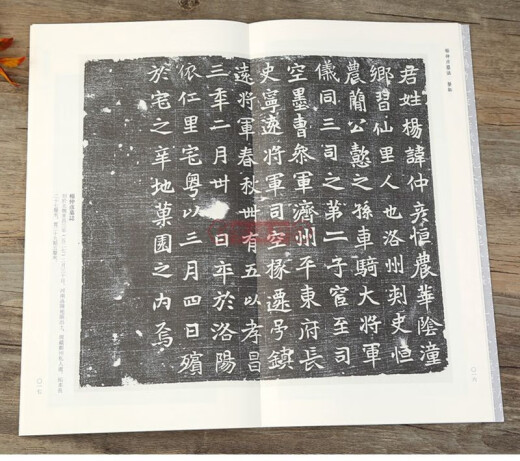 楊仲彦墓誌
君姓楊諱仲彦恒農華陰潼
鄉習仙里人也洛州刾史恒
農簡公懿之孫車騎大將軍
儀同三司之第二子官至司
空墨曹叅軍濟州平東府長
史寧遠將軍司空掾遷号鎮
遠將軍春秋卌有五以孝昌
三秊二月廿日卒於洛陽
依仁里宅粵以三月四日殯
於宅之辛地菓園之内焉
楊仲彦墓誌
〇一六
〇一七